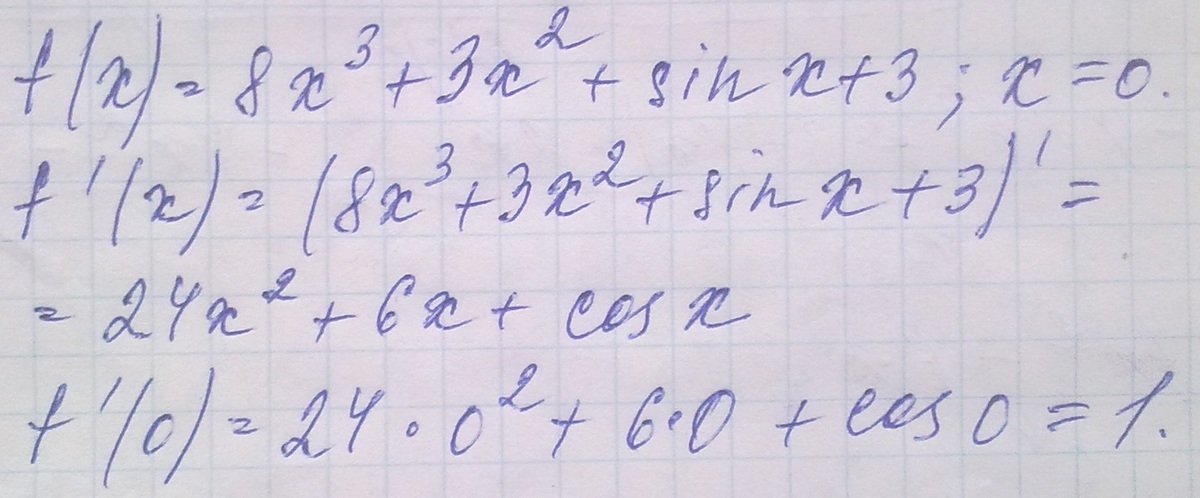 f(x) = 8x³ + 3x² + sin x + 3 ; x = 0.
f '(x) = (8x³ + 3x² + sin x + 3)' =
= 24x² + 6x + cos x
f '(0) = 24 · 0² + 6·0 + cos 0 = 1.